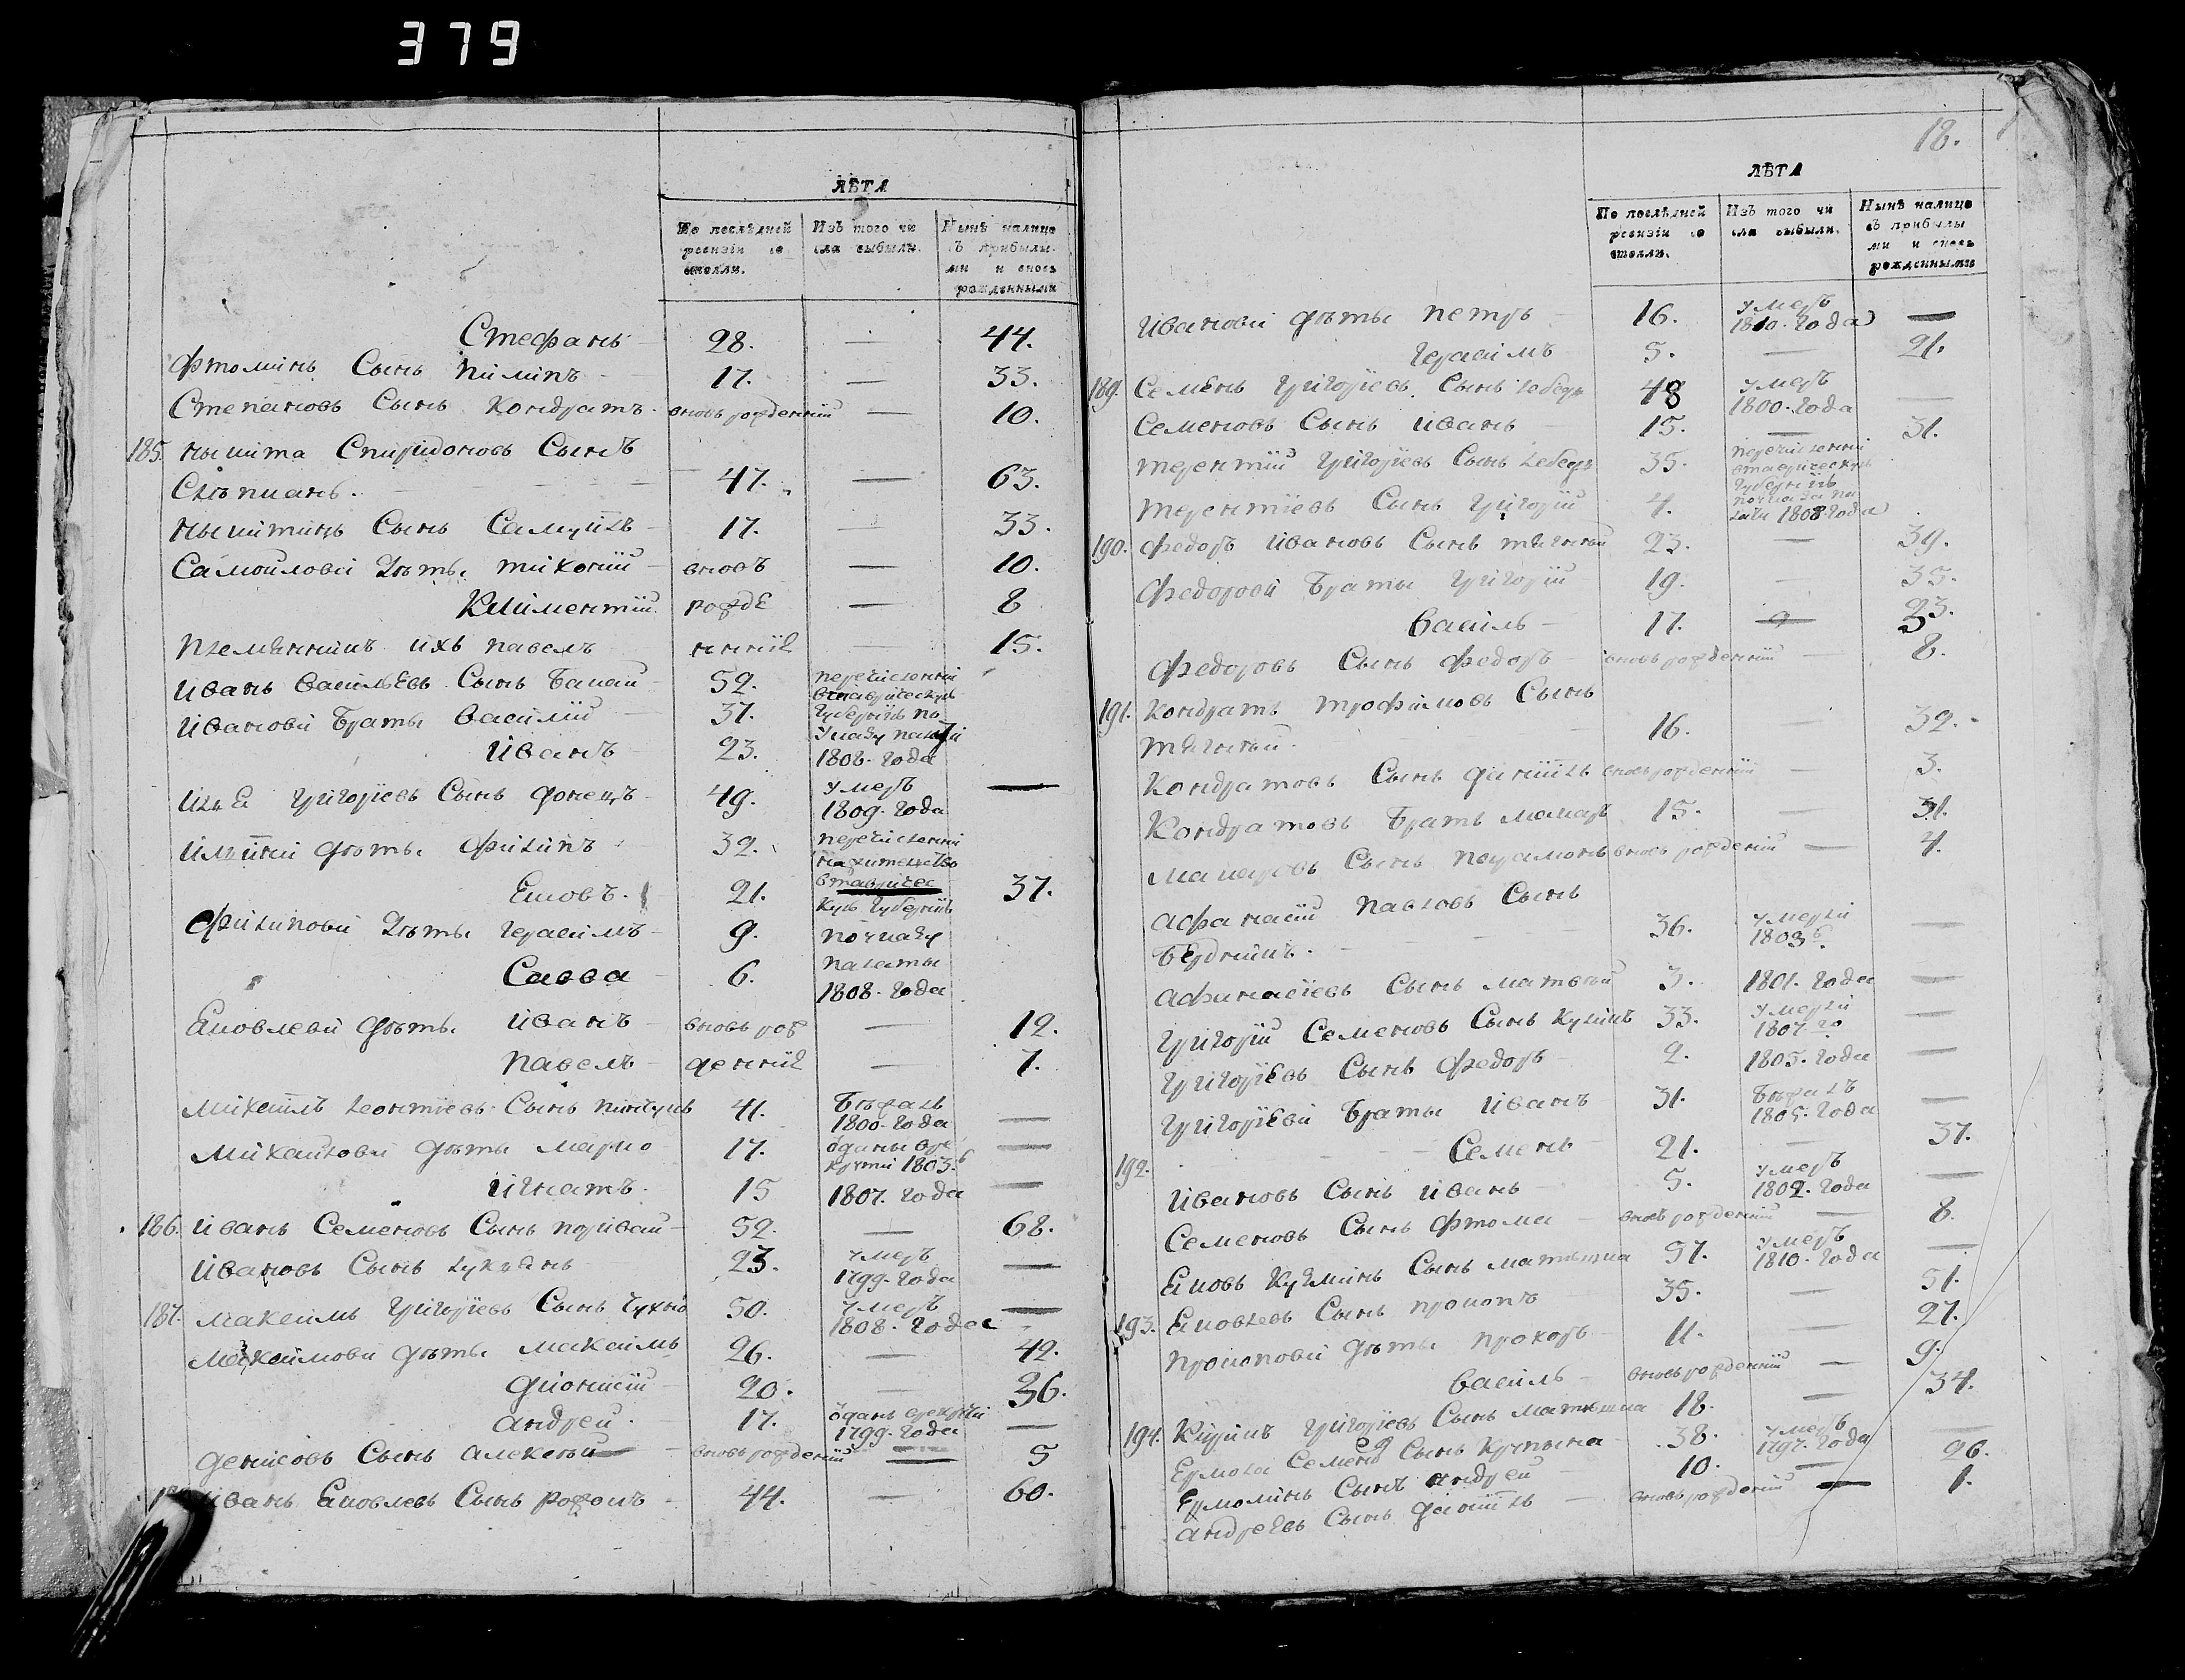 379
ЛѢТА
По послѣдней ревизіи со стояли.
Изъ того чи сла выбыли.
Нынѣ налицо съ прибылы ми и вновь рожденными
Стефанъ 28. — 44.
Фтоминъ Сынъ Пилипъ 17. — 33.
Степановъ Сынъ Кондратъ вновь рожденный — 10.
185. Никита Спиридоновъ Сынъ
47. — 63.
Никитинъ Сынъ Самуилъ 17. — 33.
Самойловы Дѣти Тихоній вновъ — 10.
Климентій рожде — 8
Племянникъ ихъ павелъ нныя — 15.
Иванъ Васильевъ Сынъ 52. перечисленны
втаврическую
Ивановы Браты Василій 37. губернію по
Указу палаты
Иванъ 23. 1808. года
Илья Григорьевъ Сынъ донецъ 49. умеръ 1809. года —
Ильины дѣти Филипъ 32. перечисленны
на жителство
втавричес
Яковъ. 21. 37.
кую губернію
Филиповы Дѣти Герасимъ 9. по указу
Савва 6. палаты
1808. года
Яковлевы дѣти Иванъ вновь рож — 12.
Павелъ денныя — 7.
Михаилъ Леонтіевъ Сынъ 41. Бѣжалъ 1800. года —
Михайловы дѣти Марко 17. отданы вре крути 1803. —
Игнатъ. 15 1807. года —
186. Иванъ Семеновъ Сынъ 52. — 68.
Ивановъ Сынъ Лукьянъ 23. умеръ 1799. года —
187. Максимъ Григорьевъ Сынъ 50. умеръ 1808. года —
Максимовы дѣти Максимъ 26. — 42.
Діонисій 20. — 36.
Андрей. 17. отданъ врекруты 1799. года —
Денисовъ Сынъ Алексѣй вновь рожденный — 5
Иванъ Яковлевъ Сынъ 44. — 60.
18.
ЛѢТА
По послѣдней ревизіи со стояли.
Изъ того чи сла выбыли.
Нынѣ налицо съ прибылы ми и вновь рожденными
Ивановы дѣти Петръ 16. умеръ 1810. года —
Герасимъ 5. — 21.
189. Семенъ Григорьевъ Сынъ Лебедь 48 умеръ 1800. года —
Семеновъ Сынъ Иванъ 15. — 31.
Терентій Григорьевъ Сынъ Лебедь 35. перечисленны
втаврическую
губернію
Терентіевъ Сынъ Григорій 4. по указу па
латы 1808. года
190. Федоръ Ивановъ Сынъ 23. — 39.
Федоровы Браты Григорій 19. — 35.
Василь 17. — 33.
Федоровъ Сынъ Федоръ вновь рожденный — 8.
191. Кондратъ Трофимовъ Сынъ
16. — 32.
Кондратовъ Сынъ Даніилъ вновь рожденный — 3.
Кондратовъ Братъ Макаръ 15. — 31.
Макаровъ Сынъ вновь рожденный — 4.
Афанасій Павловъ Сынъ
Бердникъ. 36. умерли 1803 —
Афанасіевъ Сынъ Матвѣй 3. 1801. года —
Григорій Семеновъ Сынъ Куликъ 33. умерли 1807 го —
Григорьевъ Сынъ Федоръ 2. 1805. года —
Григорьевы Браты Иванъ 31. Бѣжалъ 1805. года —
192. Семенъ 21. — 37.
Ивановъ Сынъ Иванъ 5. умеръ 1802. года —
Семеновъ Сынъ Фтома вновь рожденный — 8.
Яковъ Кузминъ Сынъ 57. умеръ 1810. года —
193. Яковлевъ Сынъ Прокопъ 35. — 51.
Прокоповы дѣти Прохоръ 11. — 27.
Василь вновь рожденный — 9.
194. Григорьевъ Сынъ 18. — 34.
Ермола Сынъ 38. умеръ 1797. года —
Ермолинъ Сынъ Андрей 10. — 26.
Андреевъ Сынъ Даніилъ вновь рожденный — 1.